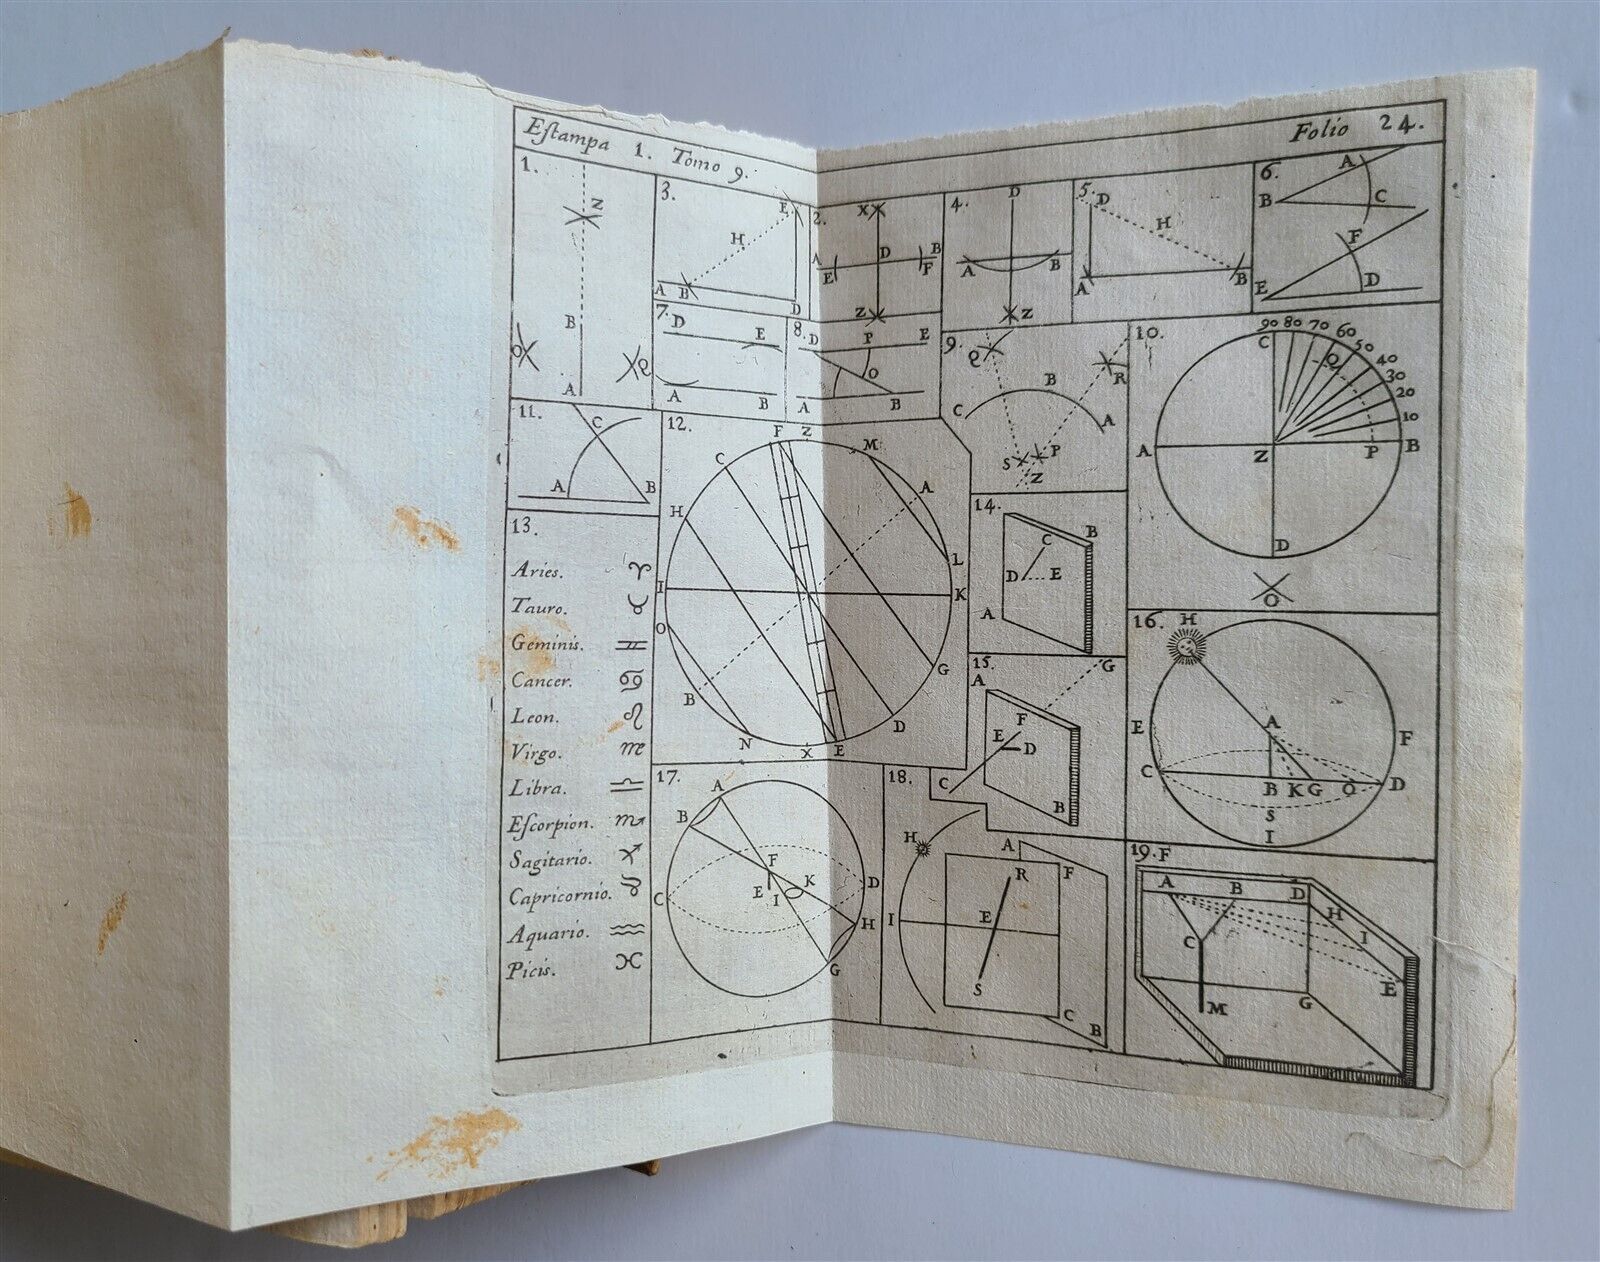 Eſtampa 1. Tomo 9.
Folio 24.
1.
Z
B
O
Q
A
3.
E
H
A B
D
2.
X
A
E
D
B
F
Z
4.
D
A
B
Z
5.
D
H
A
B
6.
A
B
C
F
E
D
7.
D
E
A
B
8.
D
P
E
O
A
B
9.
Q
R
B
C
A
S
P
Z
10.
90 80 70 60 50 40 30 20 10
C
Q
A
Z
P
B
D
O
11.
C
A
B
12.
F Z
M
C
A
H
L
I
K
O
G
B
D
N
X
E
13.
Aries. ♈
Tauro. ♉
Geminis. ♊
Cancer. ♋
Leon. ♌
Virgo. ♍
Libra. ♎
Eſcorpion. ♏
Sagitario. ♐
Capricornio. ♑
Aquario. ♒
Picis. ♓
14.
B
C
D E
A
15.
G
A
F
E
D
C
B
16.
H
A
E
F
C
B K G O D
S
I
17.
A
B
F
K
D
C
E I
H
G
18.
H
A
R
F
I
E
S
C
B
19.
F
A
B
D
H
C
I
E
M
G